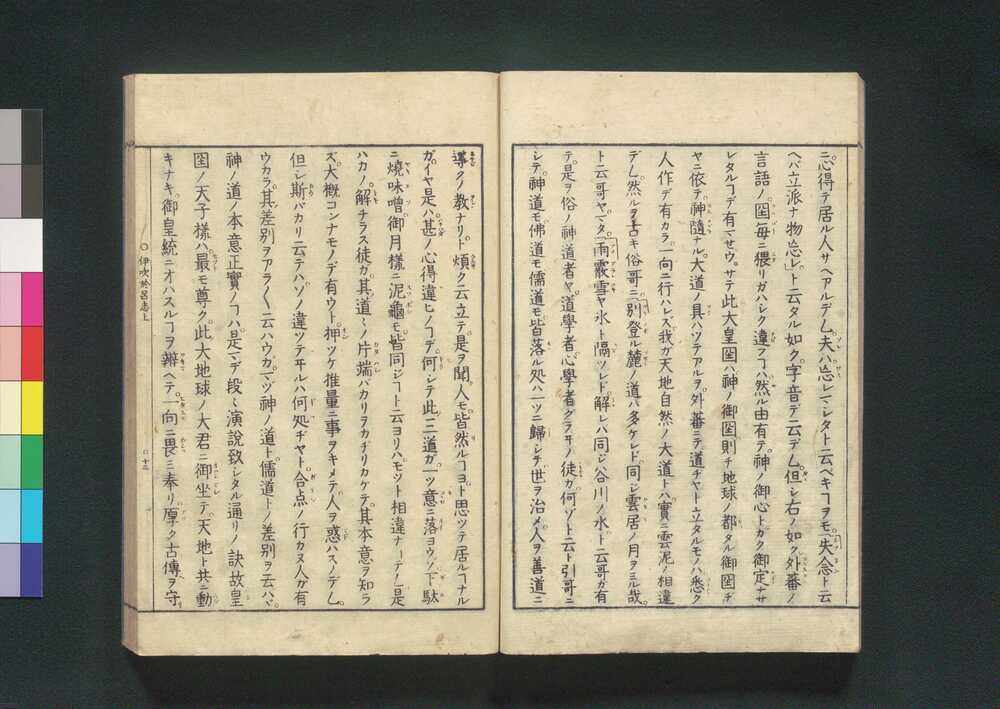 ニ心得テ居ル人サヘアルデム夫ハ忘レマシタト云ベキヿヲモ失念ト云
ヘバ立派ナ物忘レト云タル如ク字音デ云デム但シ右ノ如ク外蕃ノ
言語ノ国毎ニ猥リガハシク違フヿハ然ル由有テ神ノ御心トカク御定ナサ
レタルヿデ有マせウサテ此大皇国ハ神ノ御国則チ地球ノ都タル御国ヂ
ヤニ依テ神随ナル大道ノ具ハツテアルヲ外蕃ニテ道ヂヤト立タルモノハ悉ク
人作デ有カラ一向ニ行ハレズ我ガ天地自然ノ大道トハ實ニ雲泥ノ相違
デム然ルヲ古キ俗哥ニ別登ル麓ノ道ハ多ケレド同ジ雲居ノ月ヲミル哉
ト云哥ヤマタ雨霰雪ヤ氷ト隔ツレド解レハ同ジ谷川ノ水ト云哥ガ有
テ是ヲ俗ノ神道者ヤ道學者心學者グラヰノ徒ガ何ゾト云ト引哥ニ
シテ神道モ佛道モ儒道モ皆落ル処ハ一ツニ歸シテ世ヲ治メ人ヲ善道ニ
導クノ教ナリト煩ク云立テ是ヲ聞人モ皆然ルヿヨト思ツテ居ルヿナル
ガイヤ是ハ甚ノ心得違ヒノヿデ何シテ此三道ガ一ツ意ニ落ヨウゾ下駄
ニ燒味噌御月様ニ泥龜モ皆同ジヿト云ヨリハモツト相違ナーテノム是
ハカノ解チラス徒ガ其道々ノ片端バカリヲカヂリカケテ其本意ヲ知ラ
ズ大概コンナモノデ有ウト押ツケ推量ニ事ヲキメテ人ヲ惑ハスノデム
但シ斯バカリ云テハゾノ違ツテヰルハ何処ヂヤト合点ノ行カヌ人ガ有
ウカラ其差別ヲアラ〳〵云ハウガマヅ神ノ道ト儒道トノ差別ヲ云ハヾ
神ノ道ノ本意正實ノヿハ是マデ段々演説致レタル通リノ訣故皇
国ノ天子様ハ最モ尊ク此大地球ノ大君ニ御坐テ天地ト共ニ動
キナキ御皇統ニオハスルヿヲ辨ヘテ一向ニ畏ミ奉リ厚ク古傳ヲ守
○伊吹於呂志上
○十三